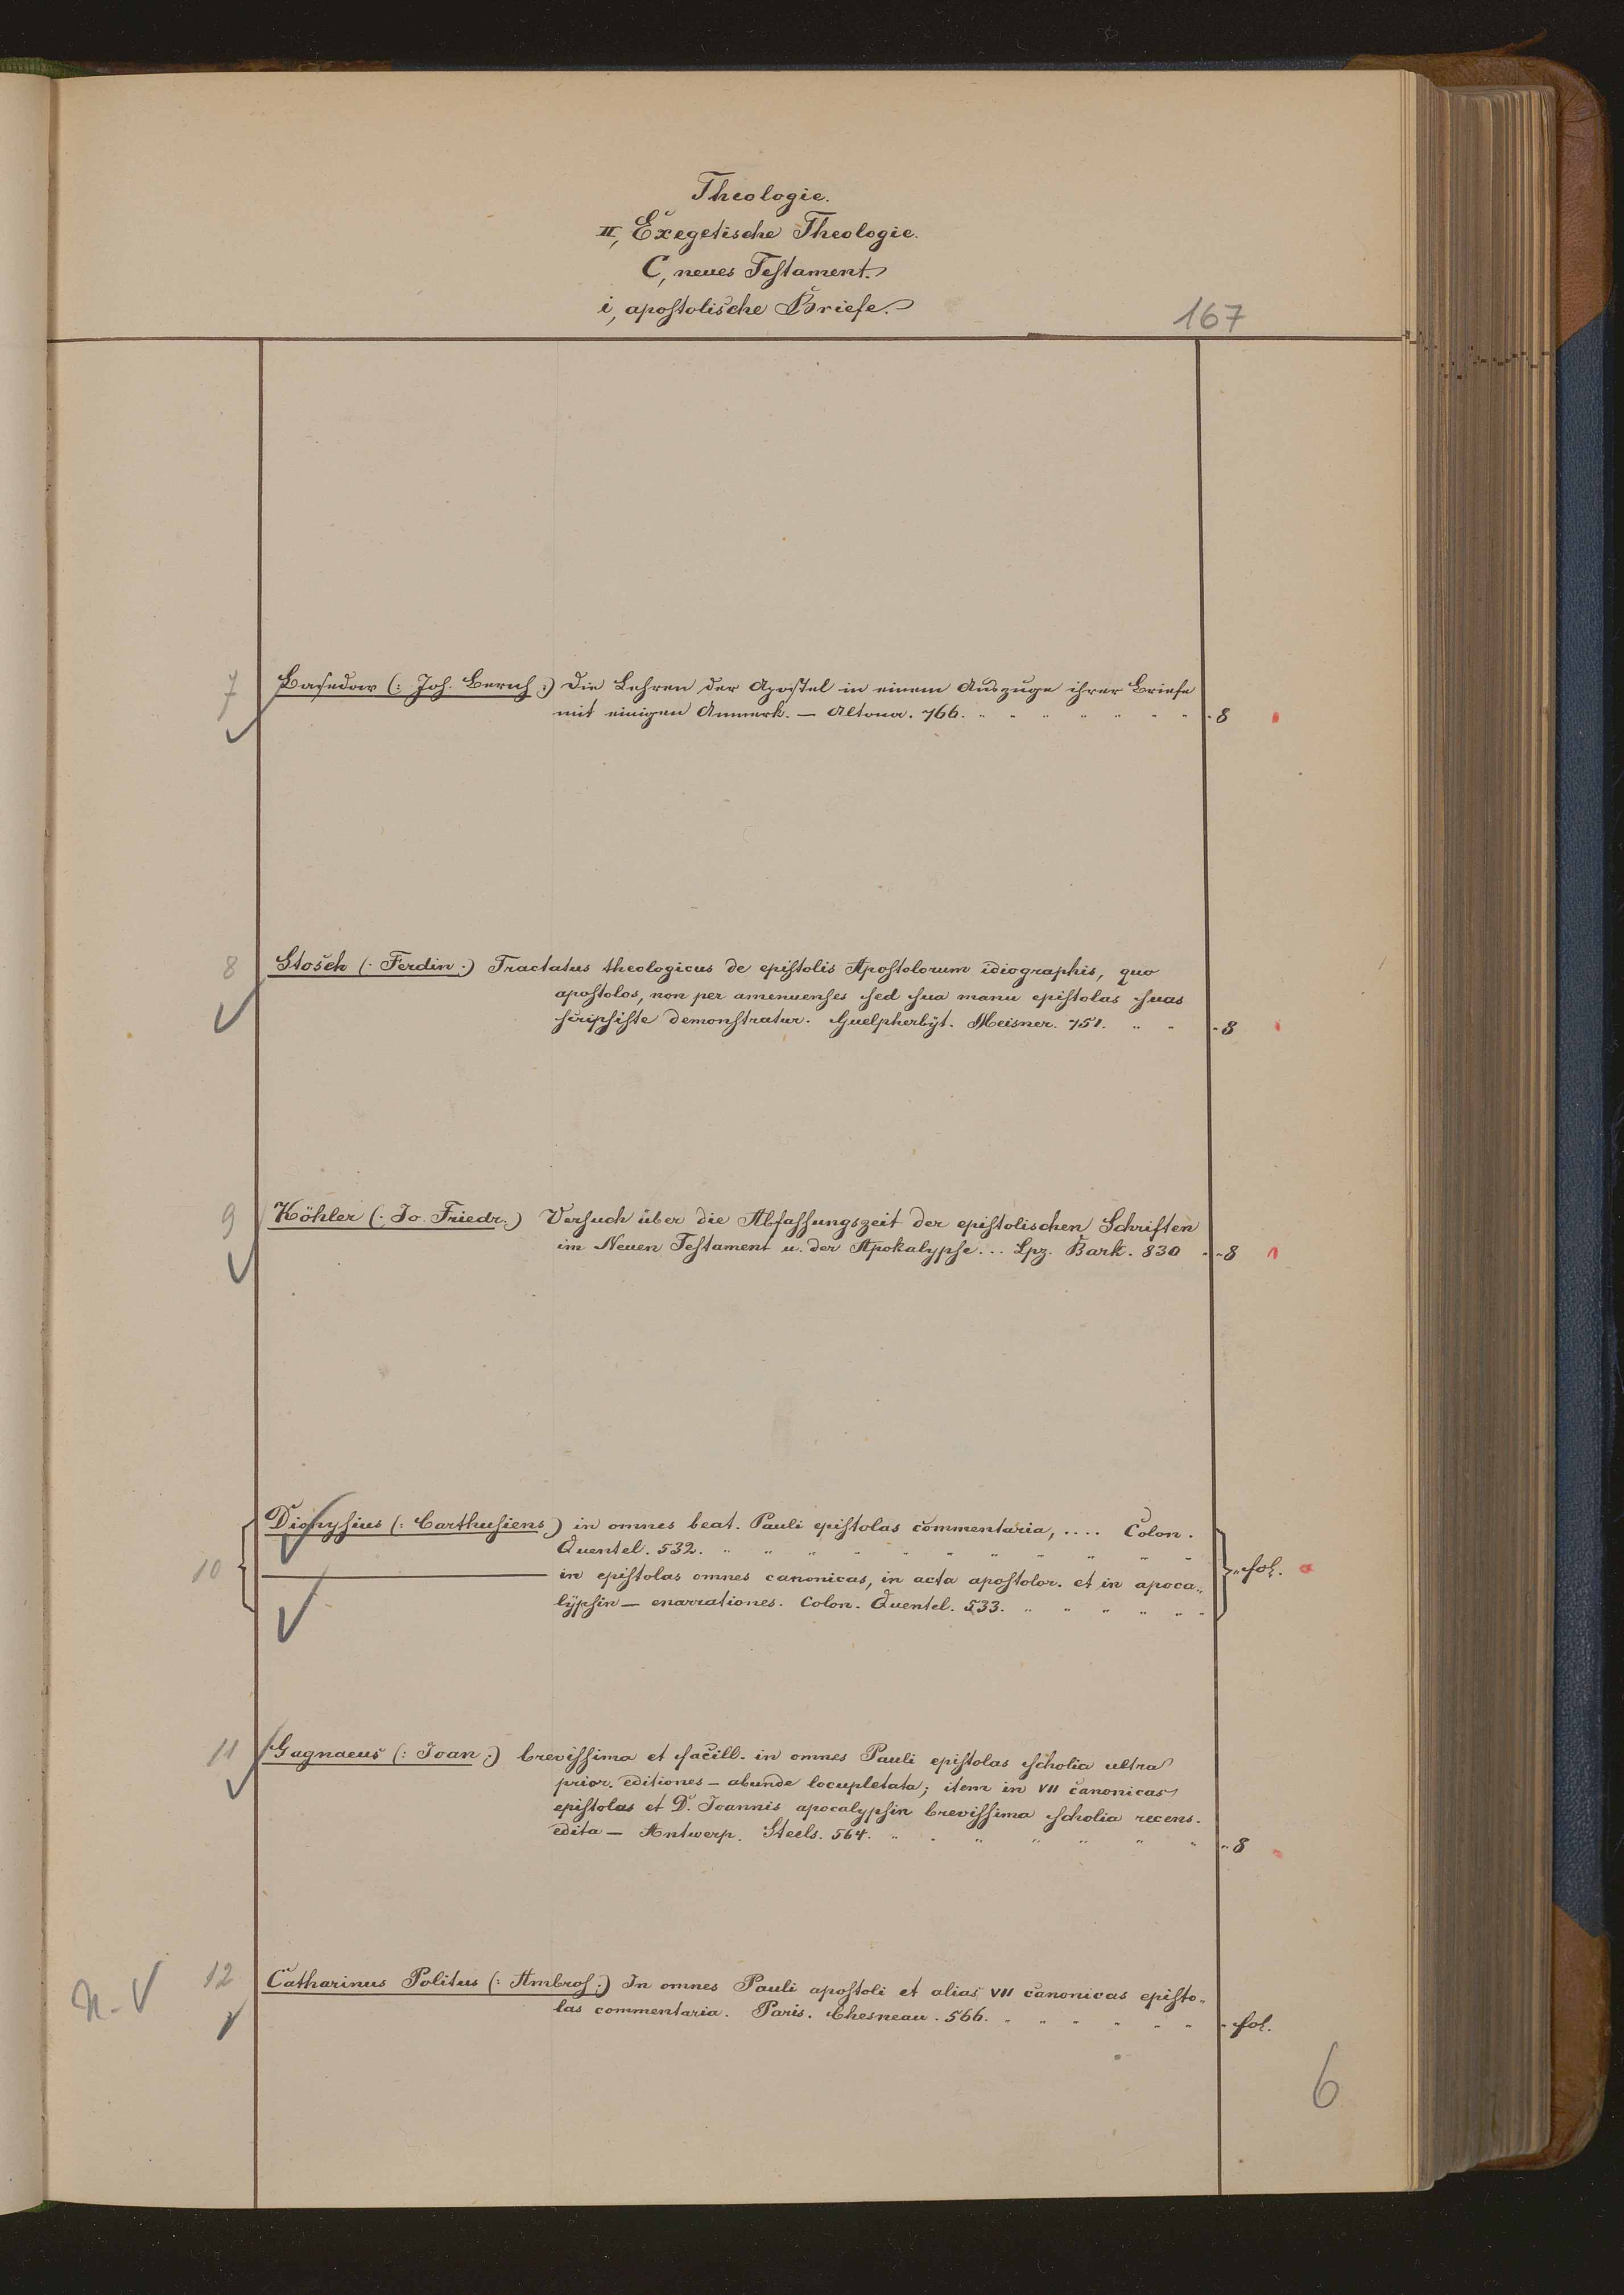 Theologie.
II, Exegetische Theologie.
C, neues Testament.
i, apostolische Briefe.
167
7 Basedow (: Joh. Bernh :) Die Lehren der Apostel in einem Auszuge ihrer Briefe
mit einigen Anmerk. — Altona. 766. 8
8 Stosch (: Ferdin :) Tractatus theologicus de epistolis Apostolorum idiographis, quo
apostolos, non per amenuenses sed sua manu epistolas suas
scripsiste demonstratur. Guelpherbyt. Meisner. 751. 8
9 Köhler (: Jo. Friedr :) Versuch über die Abfassungszeit der epistolischen Schriften
im Neuen Testament u. der Apokalypse... Lpz. Bark. 830 8
10 Dionysius (: Carthusiens :) in omnes beat. Pauli epistolas commentaria, .... Colon.
Quentel. 532.
in epistolas omnes canonicas, in acta apostolor. et in apoca„
lypsin — enarrationes. Colon. Quentel. 533. fol.
11 Gagnaeus (: Joan :) brevissima et facill. in omnes Pauli epistolas scholia ultra
prior. editiones — abunde locupletata; item in VII canonicas
epistolas et D. Joannis apocalypsin brevissima scholia recens.
edita — Antwerp. Steels. 564. 8
n. V 12 Catharinus Politus (: Ambros :) In omnes Pauli apostoli et alias VII canonicas episto„
las commentaria. Paris. Chesneau. 566. fol.
6